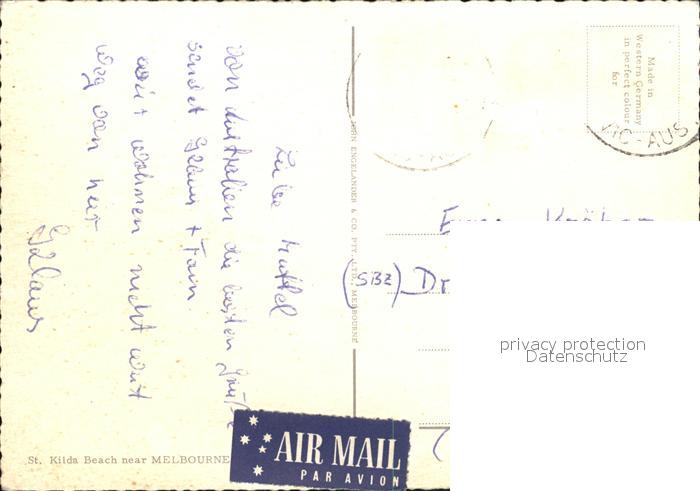 Made in
Western Germany
in perfect colour
for
VIC-AUS
JOHN ENGELANDER & CO. PTY. LTD., MELBOURNE
Liebe Muttel
von Australien die besten Grüße
sendet Klaus +
wir wohnen nicht weit
weg von hier
Klaus
(SBZ) Dr
privacy protection
Datenschutz
St. Kilda Beach near MELBOURNE
AIR MAIL
PAR AVION